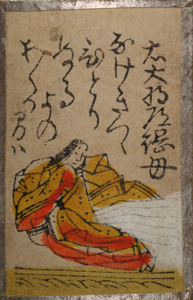 右大将道綱母
なけきつゝ
ひとり
ぬる
よの
あくる
まハ